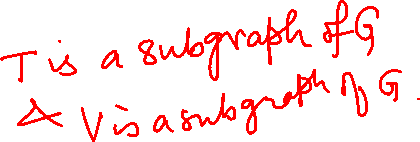 T is a subgraph of G
& V is a subgraph of G.